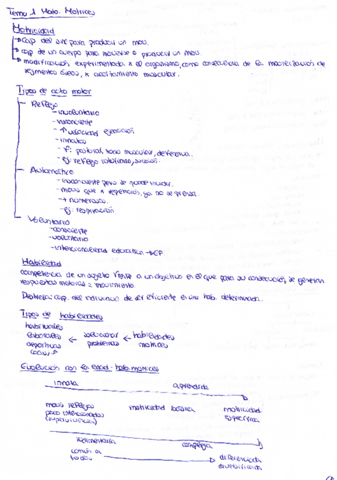 Tema 1 Hab. Motrices
Motricidad
→ cap del SNC para producir un mov.
→ cap de un cuerpo para moverse o producir un mov.
→ modificación experimentada x el organismo, como consecuencia de la movilización de
segmentos óseos, x acortamiento muscular.
Tipos de acto motor
- Reflejo
- involuntario
- inconsciente
- ↑ velocidad ejecución
- innatos
- F: postural, tono muscular, defensiva.
- ej: reflejo rotuliano, succión.
- Automático
- inconsciente pero se puede iniciar
- movs que x repetición, ya no se piensa
→ numerosos
- ej: respiración
- Voluntario
- consciente
- voluntario
- intencionalidad educativa → EF
Habilidad
competencia de un sujeto frente a un objetivo en el que para su consecución, se generan
respuestas motoras = movimiento
Destreza: cap. del individuo de ser eficiente en una hab. determinada.
Tipos de habilidades
habituales
laborales ← solucionar ← habilidades
deportivas problemas motrices
Evolución con la edad - hab motrices
innata aprendida
movs reflejos motricidad básica motricidad
poco intencionados específica
(supervivencia)
complejo
común a diferenciada
todos diversificada